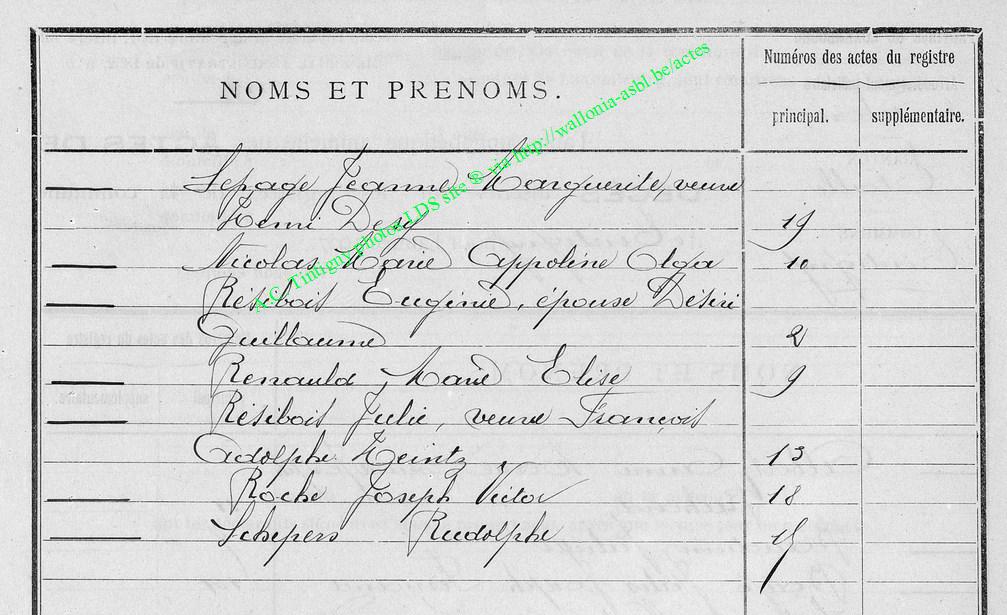 NOMS ET PRENOMS.
Numéros des actes du registre
principal.
supplémentaire.
A.C. Tintigny photos LDS site ® via http://wallonia-asbl.be/actes
Lepage Jeanne Marguerite, veuve
Henri Desy 19
Nicolas Marie Appoline Olga 10
Résibois Eugénie, épouse Désiré
Guillaume 2
Renauld, Marie Elise 9
Résibois Julie, veuve François
Adolphe Heintz 13
Roche Joseph Victor 18
Schepers Rudolphe